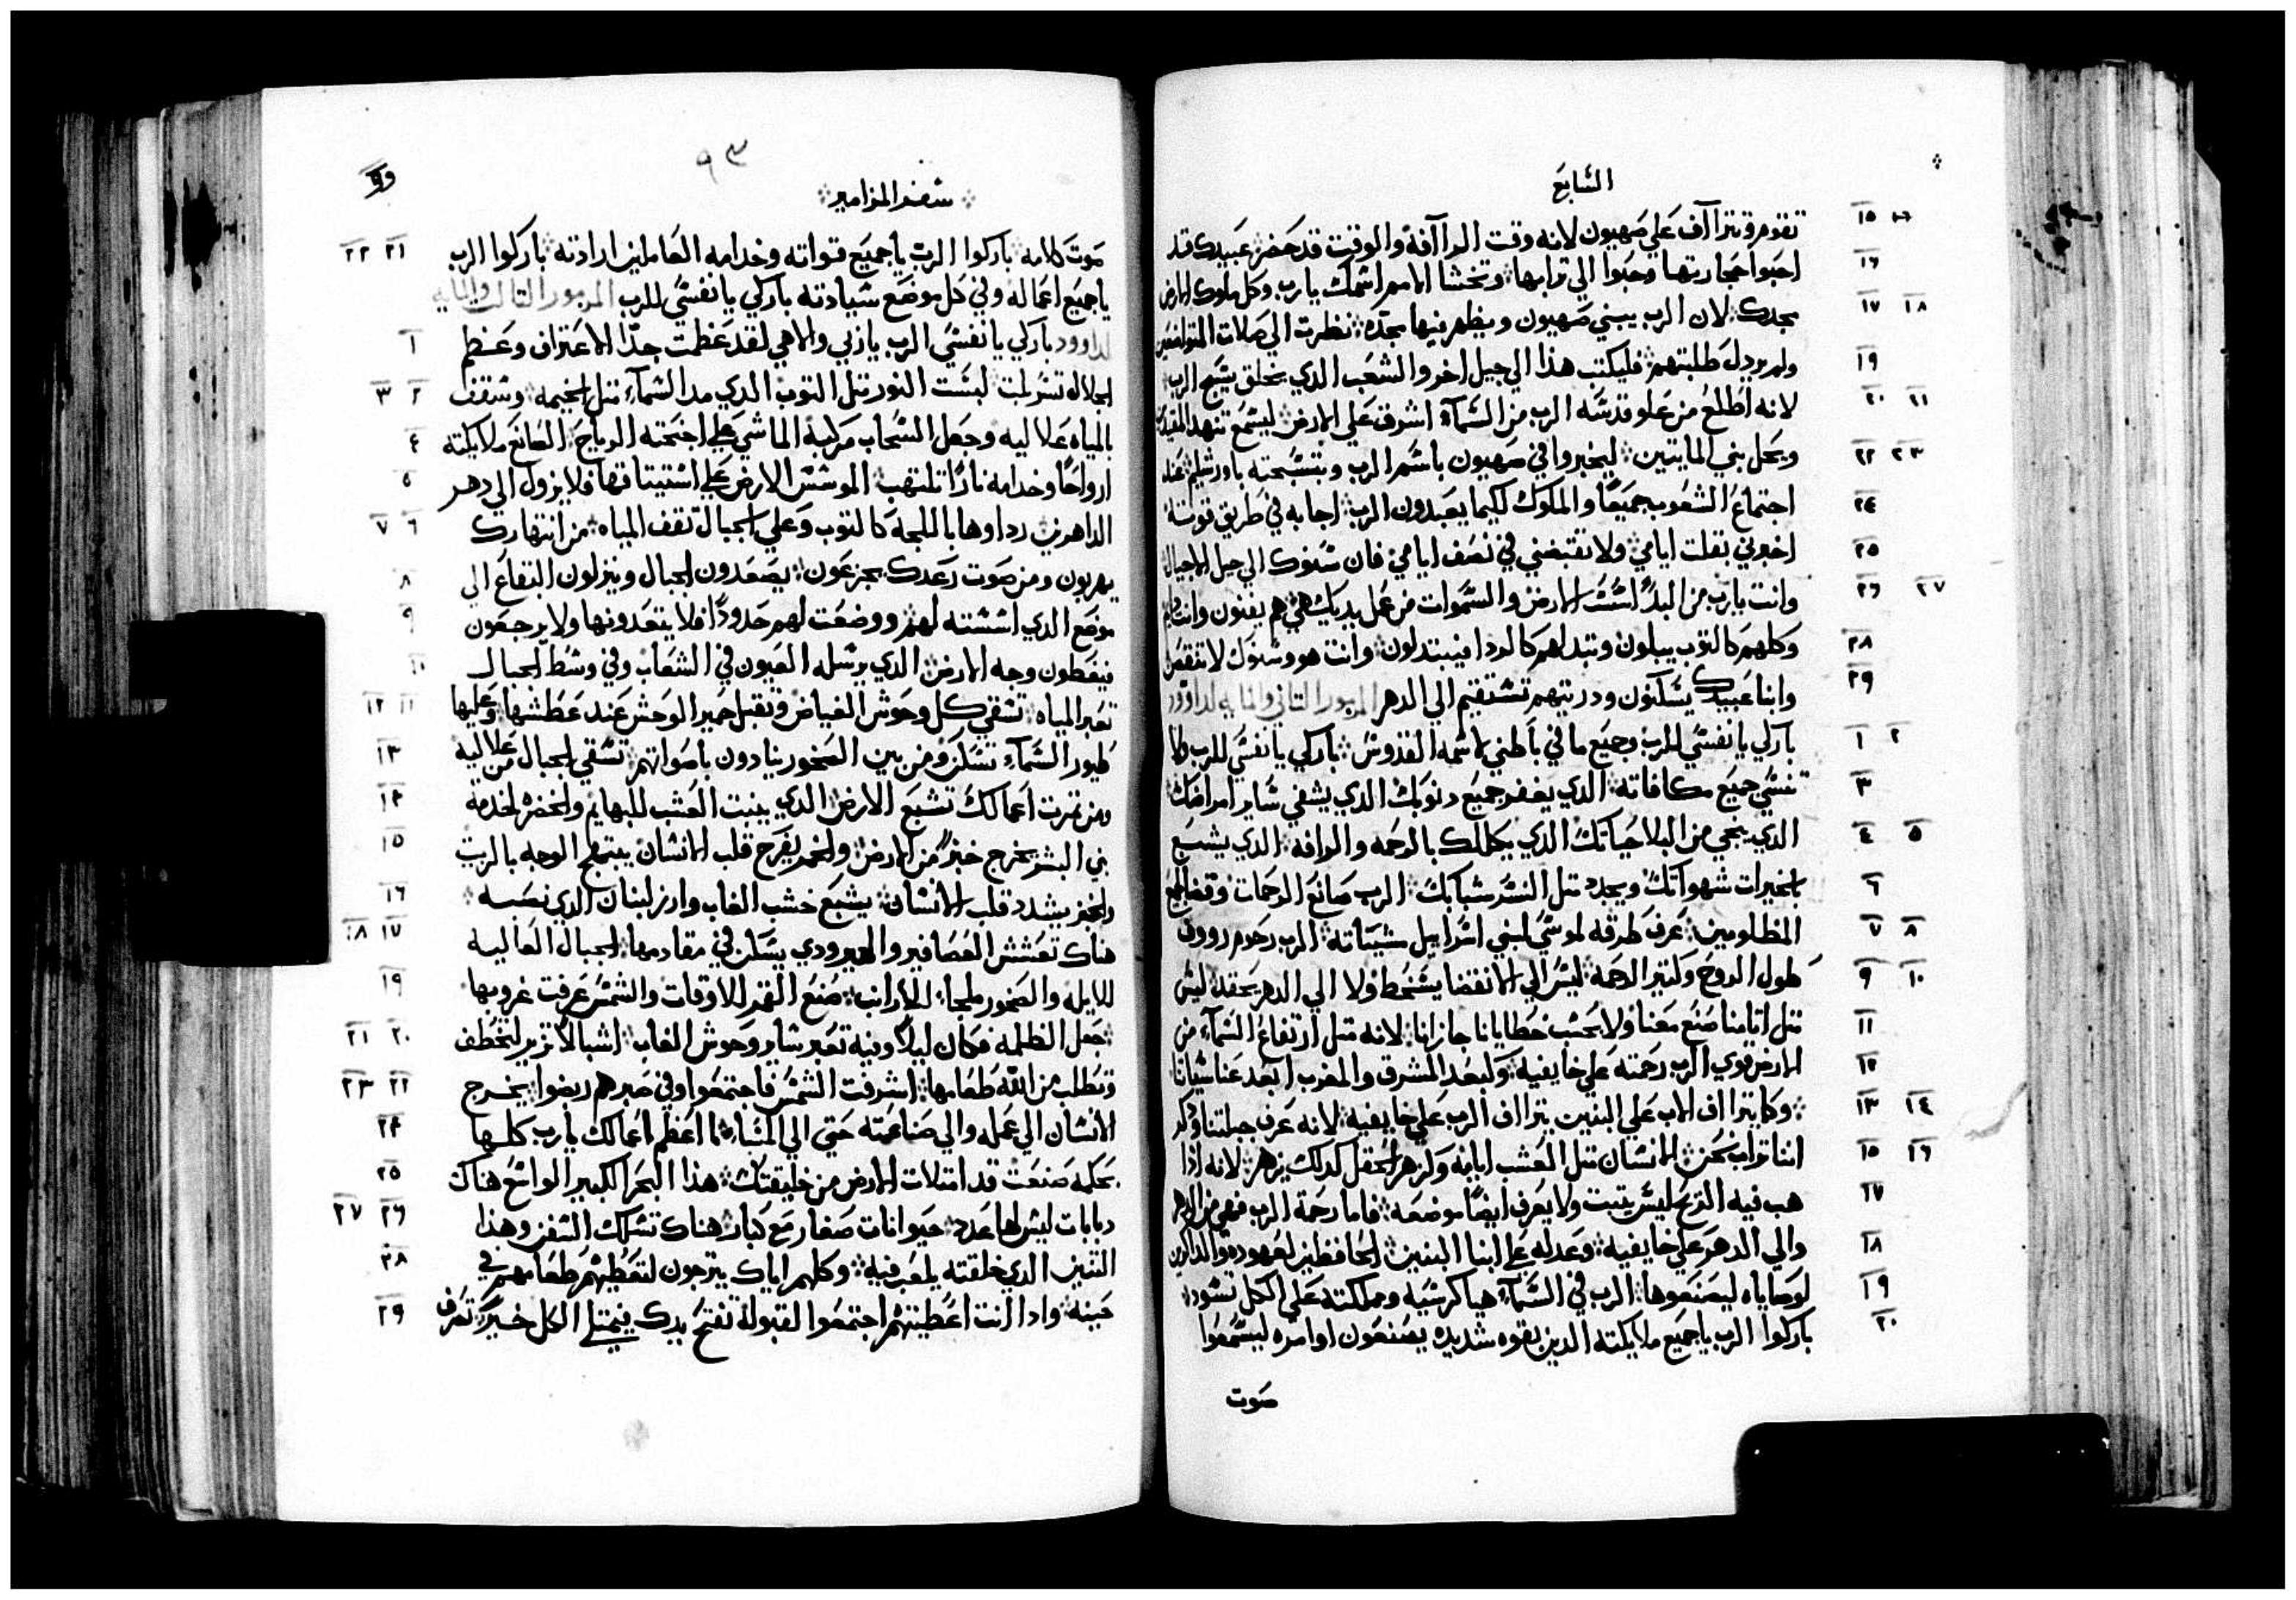 السابع
١٥ تقوم وتترااف علي صهيون لانه وقت الراافة والوقت قد حضر عبيدك قد
١٦ احبوا حجارتها وحنوا الي ترابها وتخشا الامم اسمك يارب وكل ملوك الارض
١٧ ١٨ مجدك لان الرب يبني صهيون ويظهر فيها مجده نظرت الي صلات المتواضعين
١٩ ولم يردل طلبتهم فليكتب هذا الي جيل اخر والشعب الدي يخلق يسبح الرب
٢٠ ٢١ لانه اطلع من علو قدسه الرب من السماء اشرف علي الارض ليسمع تنهد المقيدين
٢٢ ٢٣ ويحل بني المايتين ليخبروا في صهيون باسم الرب وبتسبحته باورشليم عند
٢٤ اجتماع الشعوب جميعا والملوك ليكيما يعبدون الرب اجابه في طريق قوته
٢٥ اخبرني بقلت ايامي ولا تقبضني في نصف ايامي فان سنوك الي جيل الاجيال
٢٦ ٢٧ وانت يارب من البدا اسست الارض والسموات من عمل يديك هي هم يفنون وانت
٢٨ وكلهم كالتوب يبلون وتبدلهم كالردا فيبتدلون وانت هو وسنوك لا تنقص
٢٩ وابنا عبيدك يسكنون ودريتهم تستقيم الي الدهر المزمور التاني والمايه لداوود
١ ٢ باركي يا نفسي للرب وجميع ما في باطني لاسمه القدوس باركي يا نفسي للرب ولا
٣ تنسي جميع مكافاته الدي يغفر جميع دنوبك الدي يشفي ساير امراضك
٤ ٥ الدي ينجي من البلا حياتك الدي يكللك بالرحمه والرافه الدي يشبع
٦ بالخيرات شهواتك ويجدد متل النسر شبابك الرب صانع الرحمات وقضا لجميع
٧ ٨ المظلومين عرف طرقه لموسي لبني اسراييل مشيئاته الرب رحوم رووف
٩ ١٠ طويل الروح وكتير الرحمه ليس الي الانقضا يسخط ولا الي الدهر يحقد ليس
١١ متل اتامنا صنع معنا ولا بحسب خطايانا جازانا لانه متل ارتفاع السماء من
١٢ الارض قوي الرب رحمته علي خايفيه وكبعد المشرق والمغرب ابعد عنا سياتنا
١٣ ١٤ وكما يترااف الاب علي البنين يترااف الرب علي خايفيه لانه عرف جبلتنا وذكر
١٥ ١٦ اننا تراب نحن الانسان متل العشب ايامه وكزهر الحقل كدلك يزهر لانه ادا
١٧ هب فيه الريح ليس يتبت ولا يعرف ايضا موضعه فاما رحمة الرب فهي من الدهر
١٨ والي الدهر علي خايفيه وعدله علي ابنا البنين الحافظين لعهوده والداكرين
١٩ لوصاياه ليصنعوها الرب في السماء هيا كرسيه ومملكته علي الكل تسود
٢٠ باركوا الرب ياجميع ملايكته الدين بقوه شديده يصنعون اوامره ليسمعوا
صوت
٩٣
سفر المزامير
٢١ ٢٢ صوت كلامه باركوا الرب يا جميع قواته وخدامه العاملين ارادته باركوا الرب
ياجميع اعماله وفي كل موضع سيادته باركي يا نفسي للرب المزمور التالت والمايه
١ لداوود باركي يا نفسي الرب يا ربي والاهي لقد عظمت جدا الاعتراف وعظم
٢ ٣ الجلاله تسربلت لبست النور متل التوب الدي مد السماء متل الخيمه وسقف
٤ بالمياه علاليه وجعل السحاب مركبة الماشي علي اجنحته الرياح الصانع ملايكته
٥ ارواحا وخدامه نارا تلتهب الموسس الارض علي استيتاقها فلا يزول الي دهر
٦ ٧ الداهرين رداوها باللجة كالتوب وعلي الجبال تقف المياه من انتهارك
٨ يهربون ومن صوت رعدك يجزعون يصعدون الجبال وينزلون البقاع الي
٩ موضع الدي اسسته لهم ووضعت لهم حدودا فلا يتعدونها ولا يرجعون
١٠ فيغطون وجه الارض الدي يرسله العيون في الشعاب وفي وسط الجبال
١١ ١٢ تعبر المياه تسقي كل وحوش الغياض وتقبل حمير الوحش عند عطشها وعليها
١٣ طيور السماء تسكن ومن بين الصخور ينادون باصواتهم تسقي الجبال من علاليه
١٤ ومن تمرت اعمالك تشبع الارض الدي ينبت العشب للبهايم والخضره لخدمه
١٥ بني البشر يخرج خبزا من الارض والخمر يفرح قلب الانسان يبتهج الوجه بالزيت
١٦ والخبز يشدد قلب الانسان يشبع خشب الغاب وارز لبنان الدي نصبه
١٧ ١٨ هناك تعشش العصافير والهيرودي يسكن في مقادمها الجبال العاليه
١٩ للايله والصخور ملجاء للارانب صنع القمر للاوقات والشمس عرفت غروبها
٢٠ ٢١ جعل الظلمه فكان ليلا وفيه تعبر ساير وحوش الغاب اشبالا تزير لتخطف
٢٢ ٢٣ وتطلب من الله طعامها اشرقت الشمس فاجتمعوا وفي صيرهم ربضوا يخرج
٢٤ الانسان الي عمله والي صناعته حتي الي المساء ما اعظم اعمالك يارب كلها
٢٥ بحكمه صنعت قد امتلات الارض من خليقتك هذا البحر الكبير الواسع هناك
٢٦ ٢٧ دبابات ليس لها عدد حيوانات صغار مع كبار هناك تسلك السفن وهذا
٢٨ التنين الدي خلقته يلعب فيه وكلهم اياك يترجون لتعطيهم طعامهم في
٢٩ حينه وادا انت اعطيتهم اجتمعوا لقبوله تفتح يدك فيمتلي الكل خيرا تصرف